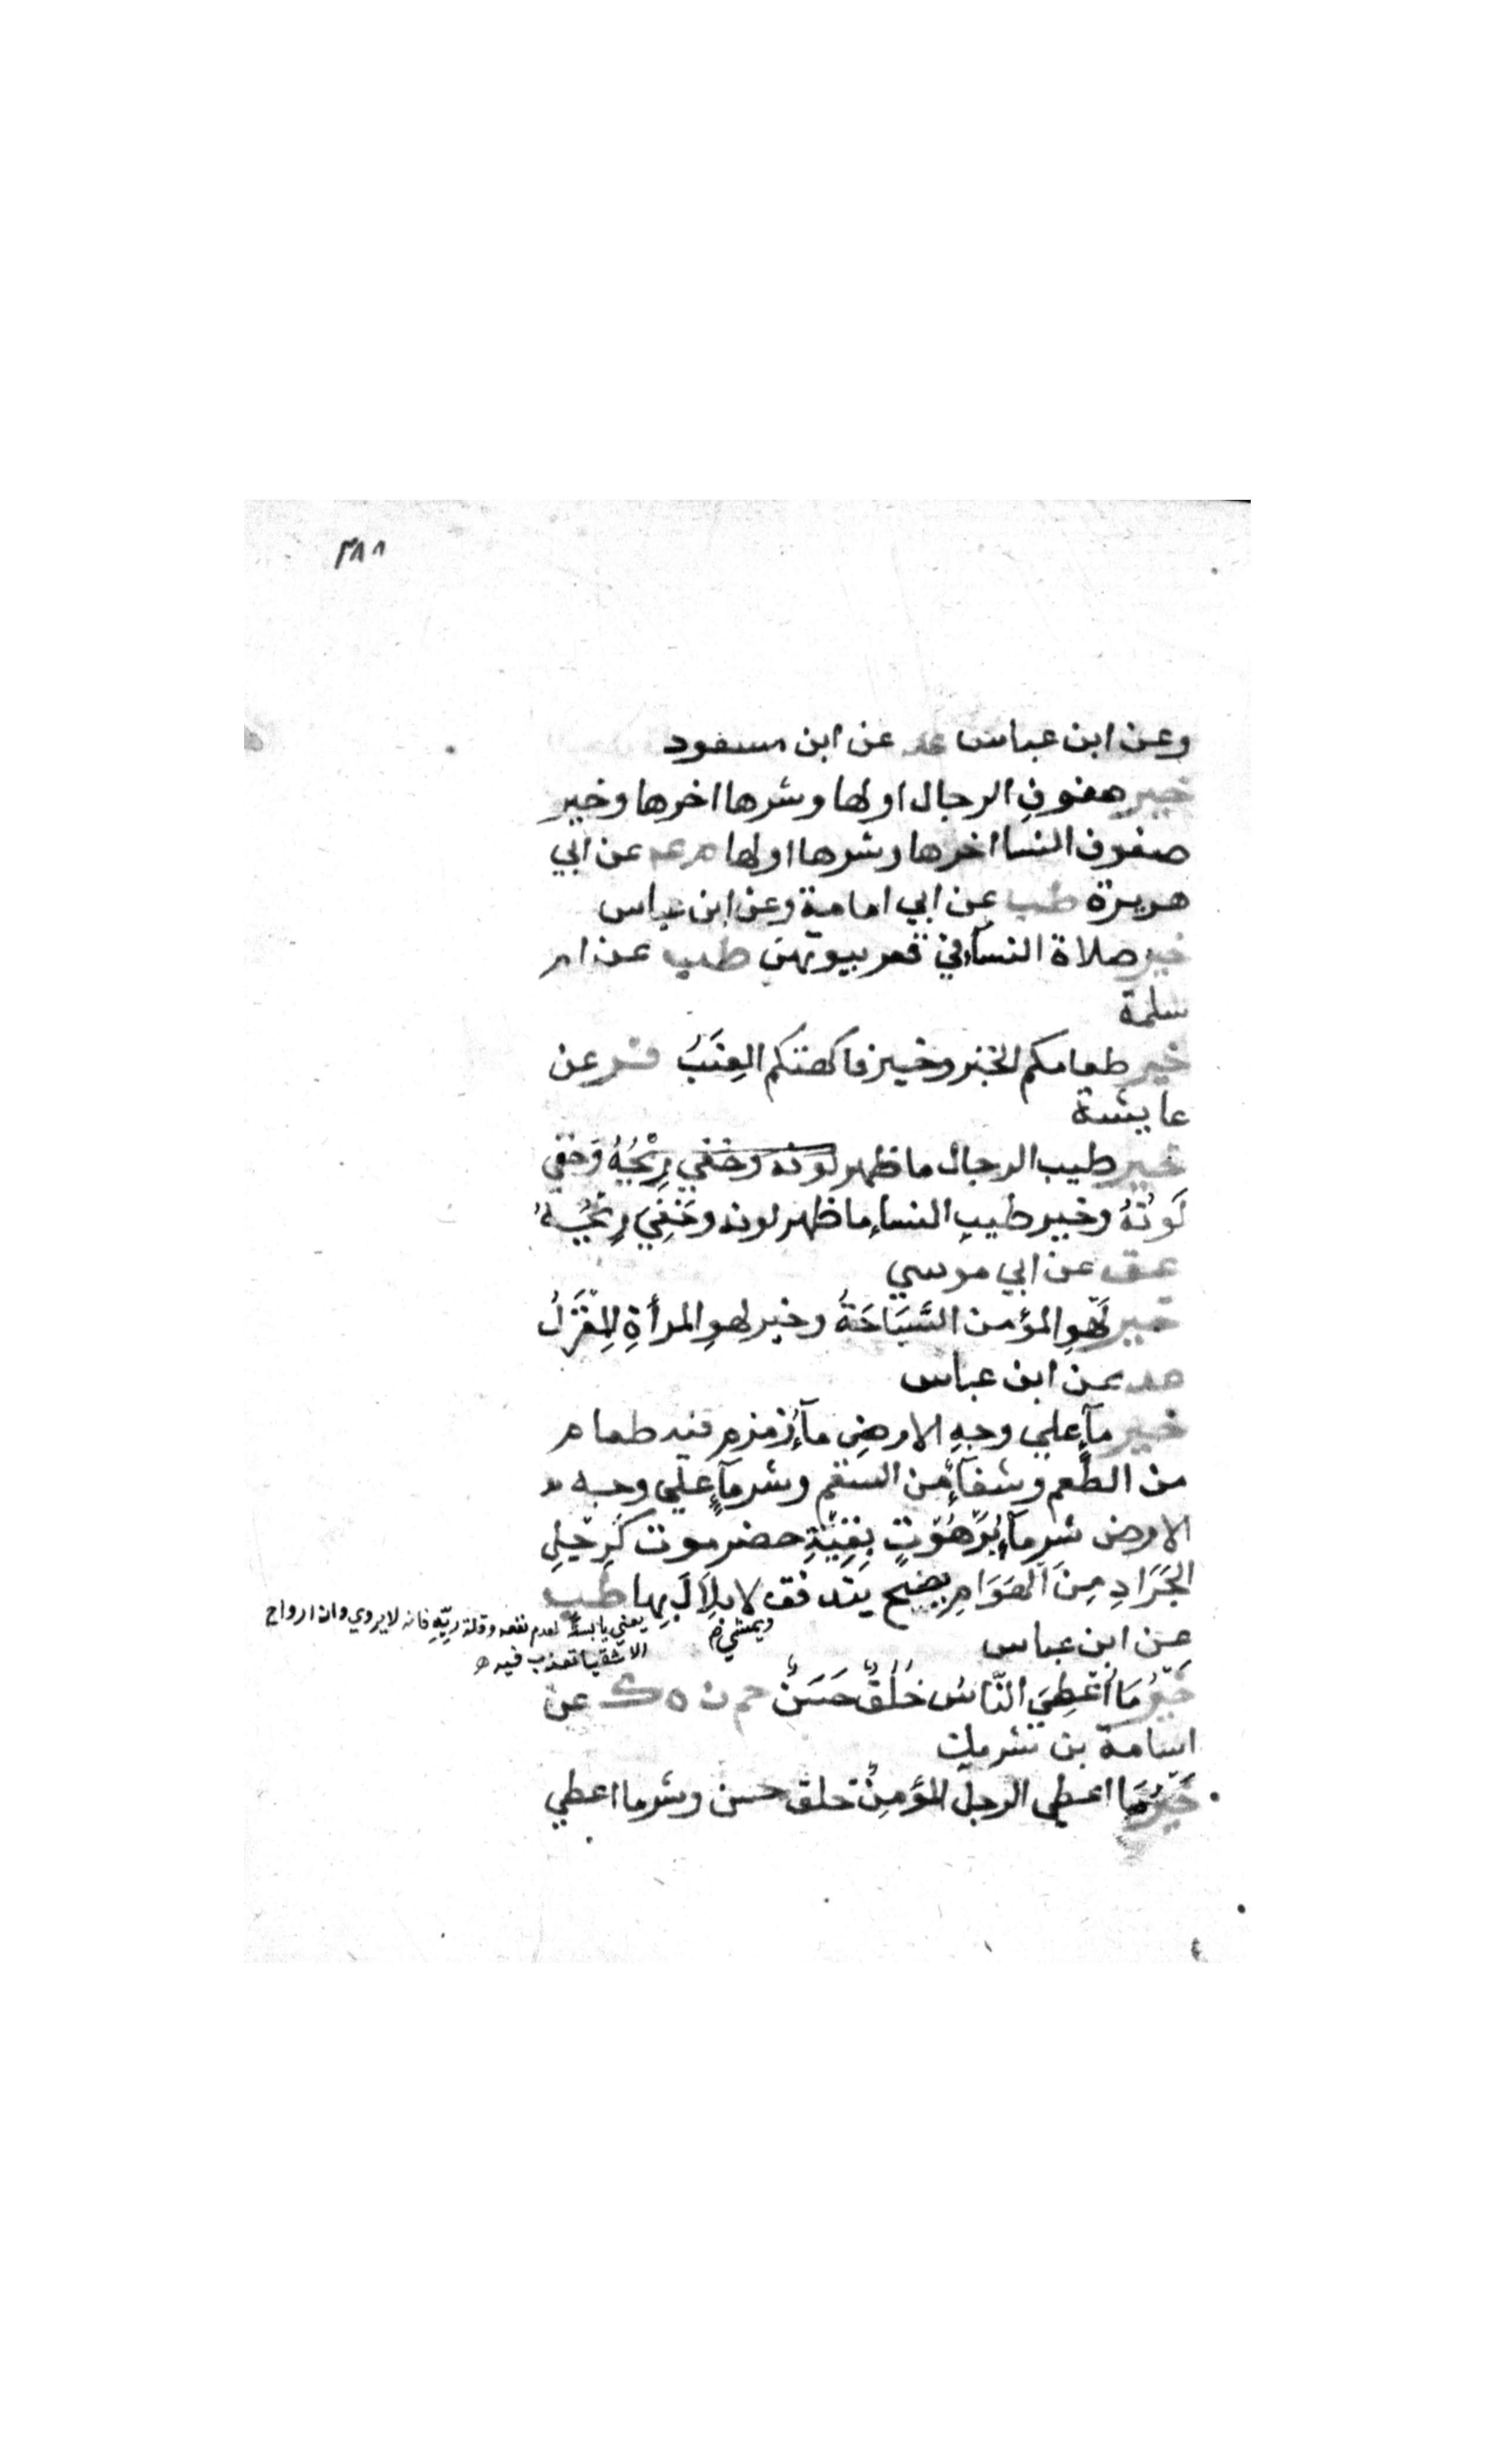 ٣٨٨
وعن ابن عباس عد عن ابن مسعود
خير صفوف الرجال اولها وشرها اخرها وخير
صفوف النسا اخرها وشرها اولها م عه عن ابي
هريرة طب عن ابي امامة وعن ابن عباس
خير صلاة النسآءِ في قعر بيوتهن طب عن ام
سلمة
خير طعامكم الخبز وخير فاكهتكم العِنَبُ فر عن
عايشة
خير طيب الرجال ما ظهر لونه وخفي رِيْحُهُ وَخفي
لَونُهُ وخير طيبِ النسآءِ ما ظهر لونه وخَفِيَ رِيْحُهُ
عق عن ابي موسي
خير لَهْوِ المؤمن السَّبَاحَةُ وخير لهوِ المرأةِ المِغْزَلُ
عد عن ابن عباس
خير مآءٍ علي وجهِ الارضِ مآءُ زمزم فيه طعام
من الطُّعم وشفآءٌ من السقم وشر مآءٍ علي وجه
الارض شر مآءُ بَرَهُوْتٍ بقِيَّةِ حضرموت كَرِجْلِ
الجَرَادِ مِنَ الهَوَامِ يصبح يَتَدفق لا بِلاَلَ بِها طب
ويمشي
يعني يابسة لعدم نفعه وقلة رِيّهِ فانه لا يروي وان ارواح
الاشقيا تعذب فيه
عن ابن عباس
خَيْرُ مَا أُعْطِيَ النَّاسُ خُلُقٌ حَسَنٌ حم ن ه ك عن
اسامة بن شريك
خَيْرُ مَا اعطي الرجل المؤمِنُ خلق حسن وشر ما اعطي